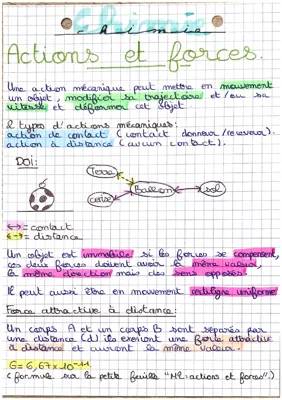 Chimie
Actions et forces.
Une action mécanique peut mettre en mouvement
un objet, modifier sa trajectoire et/ou sa
vitesse et déformer cet objet.
2 types d'actions mécaniques:
action de contact (contact donneur/receveur).
action à distance (aucun contact).
DOI:
Terre
Ballon
sol
↔ = contact
↔ = distance
Un objet est immobile si les forces se compensent,
ces deux forces doivent avoir la même valeur,
la même direction mais des sens opposés.
Il peut aussi être en mouvement rectiligne uniforme
Force attractive à distance:
Un corps A et un corps B sont séparés par
une distance (d) ils exercent une force attractive
à distance et auront la même valeur.
G = 6,67×10⁻¹¹
(formule sur la petite feuille "M2: actions et forces".)